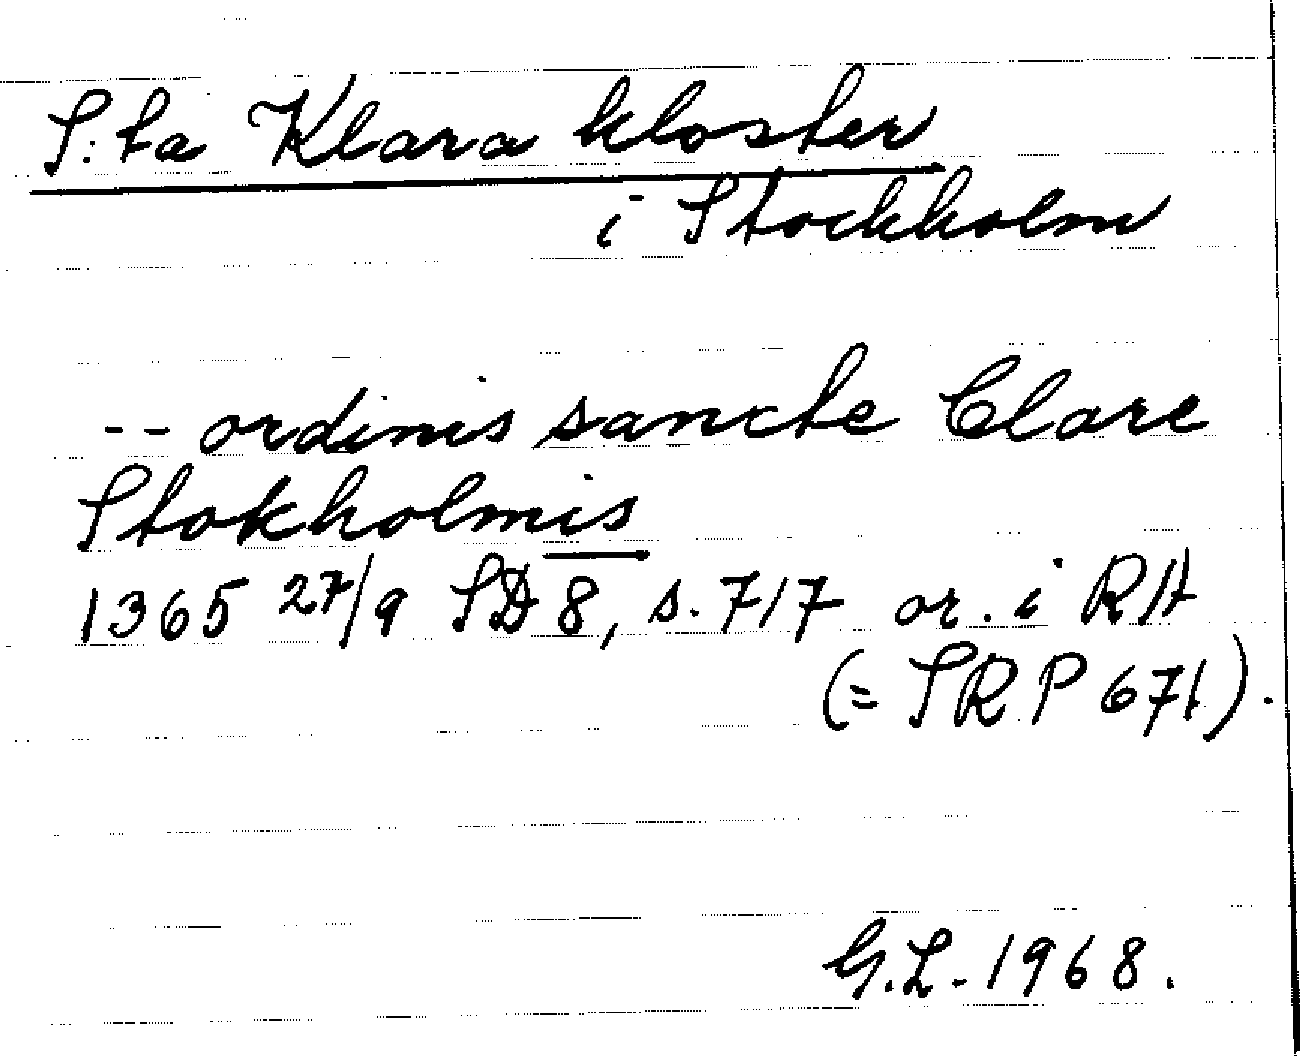 S:ta Klara kloster
i Stockholm
-- ordinis sancte Clare
Stokholmis
1365 27/9 SD 8, s. 717 or. i RA
(= SRP 671).
G.L. 1968.